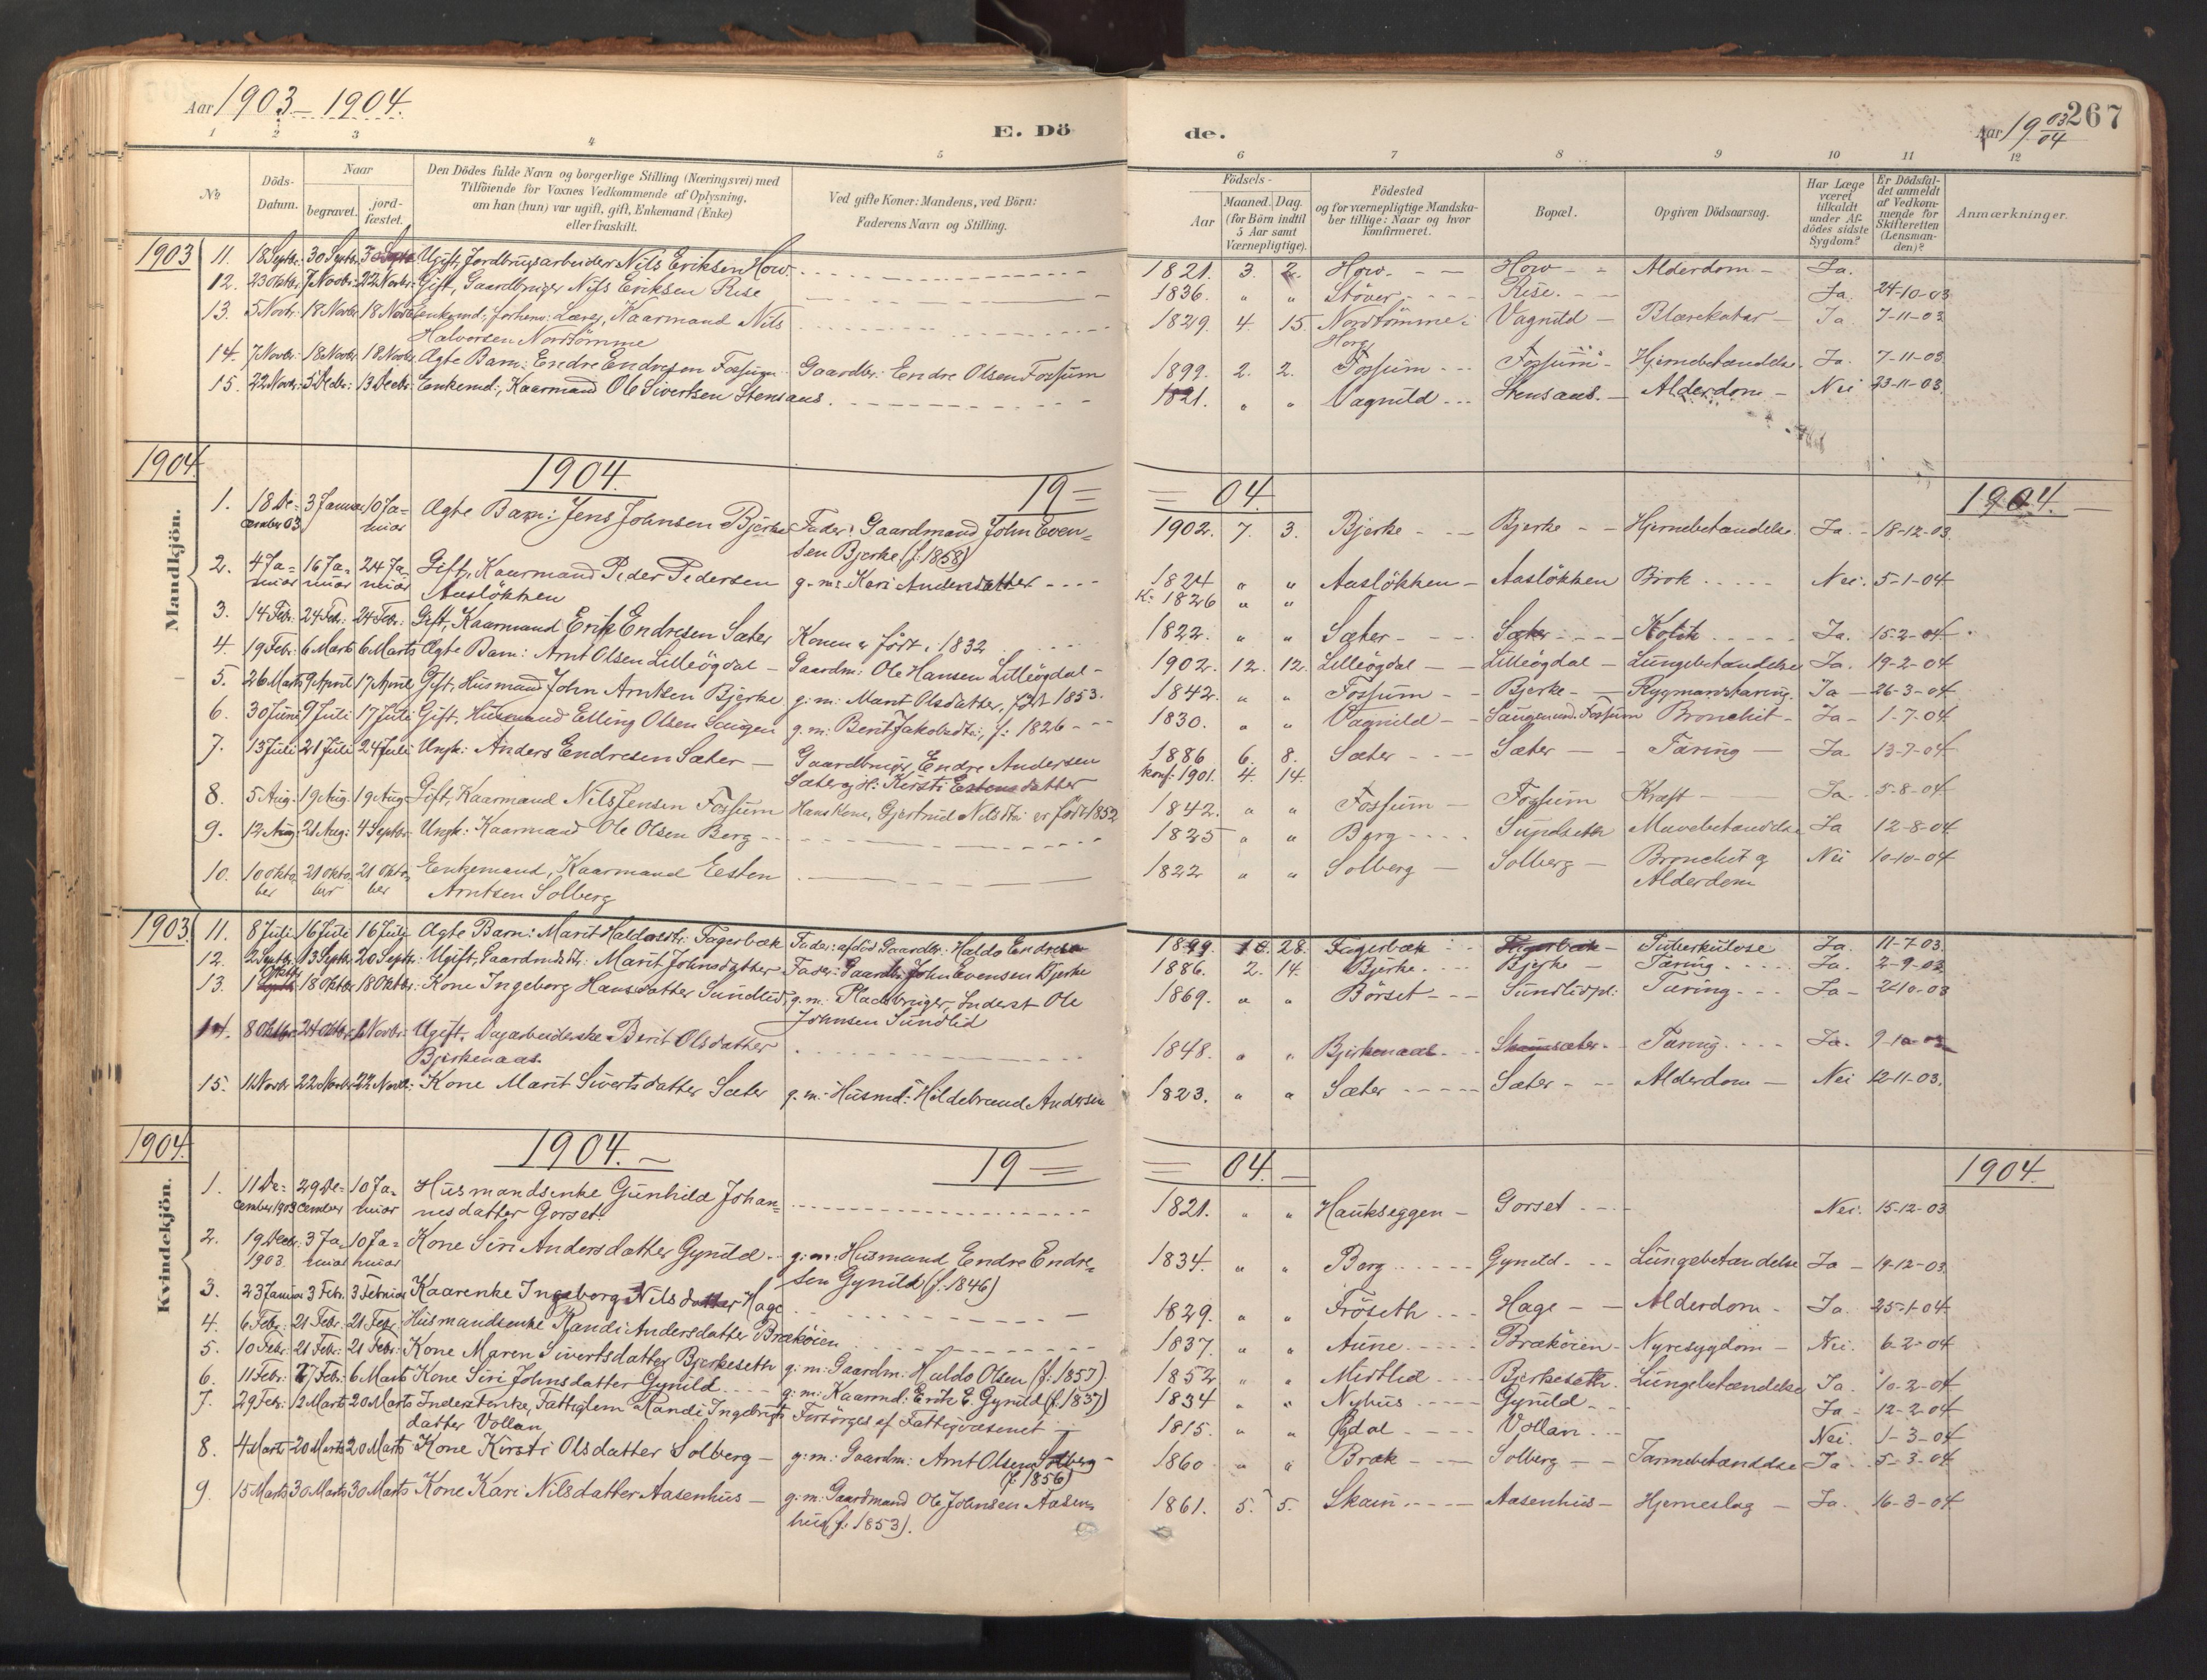 Aar 1903 - 1904.
E. Dö
de.
Aar 1903/04
267
1 2 3 4 5 6 7 8 9 10 11 12
No
Döds-Datum.
Naar
begravet.
jord-fæstet.
Den Dödes fulde Navn og borgerlige Stilling (Næringsvei) med
Tilföiende for Voxnes Vedkommende af Oplysning,
om han (hun) var ugift, gift, Enkemand (Enke)
eller fraskilt.
Ved gifte Koner: Mandens, ved Börn:
Faderens Navn og Stilling.
Födsels-
Aar
Maaned. Dag.
(for Börn indtil
5 Aar samt
Værnepligtige).
Födested
og for værnepligtige Mandska-
ber tillige: Naar og hvor
konfirmeret.
Bopæl.
Opgiven Dödsaarsag.
Har Læge
været
tilkaldt
under Af-
dödes sidste
Sygdom?
Er Dödsfal-
det anmeldt
af Vedkom-
mende for
Skifteretten
(Lensman-
den)?
Anmærkninger.
1903
11. 18 Septbr: 30 Septbr: Ugift, Jordbrugsarbeider Nils Eriksen How 1821. 3. 2. How How Alderdom Ja.
12. 23 Oktbr: 7 Novbr: 22 Novbr: Gift, Gaardbruger Nils Eriksen Rise 1836. " " Stöver Rise. Ja. 24-10-03
13. 5 Novbr: 18 Novbr 18 Novbr Enkemd:, forhenv: Lærer, Kaarmand Nils 1829. 4. 15. Nordtömme i Vagnild Blærekatar Ja 7-11-03
Halvorsen Nordtömme Horg
14. 7 Novbr: 18 Novbr 18 Novbr. Ægte Barn: Endre Endresen Fossum Gaardbr: Endre Olsen Fossum 1899. 2. 2. Fossum Fossum Hjernebetændelse. Ja. 7-11-03
15. 22 Novbr: 5 Decbr: 13 Decbr: Enkemd:, Kaarmand Ole Sivertsen Stensaas. 1821. " " Vagnild Stensaas. Alderdom Nei 23-11-03.
1904. 1904. 19= =04. 1904.
Mandkjön.
1. 18 De- 3 Januar 10 Ja- Ægte Barn: Jens Johnsen Bjerke Fader: Gaardmand John Even- 1902. 7. 3. Bjerke Bjerke Hjernebetændelse. Ja. 18-12-03.
cember 03 nuar sen Bjerke (f. 1858)
2. 4 Ja- 16 Ja- 24 Ja- Gift, Kaarmand Peder Pedersen g. m: Kari Andersdatter 1824 " " Aaslökken Aaslökken Brok Nei. 5-1-04
nuar nuar nuar Aaslökken K: 1826 " "
3. 14 Febr: 24 Febr: 24 Febr: Gift, Kaarmand Erik Endresen Sæter Konen er födt: 1832 1822. " " Sæter Sæter Kolik Ja. 15-2-04.
4. 19 Febr: 6 Marts 6 Marts Ægte Barn: Arnt Olsen Lilleögdal Gaardm: Ole Hansen Lilleögdal 1902. 12. 12. Lilleögdal Lilleögdal Lungebetændelse Ja. 19-2-04
5. 26 Marts 9 April 17 April Gift, Husmand John Arntsen Bjerke g: m: Marit Olsdatter, födt 1853. 1842. " " Fossum Bjerke Rygmarvstæring. Ja 26-3-04.
6. 30 Juni 9 Juli 17 Juli Gift, Husmand Elling Olsen Saugen g. m: Berit Jakobsdtr:, f: 1826 1830. " " Vagnild Saugen und. Fossum Bronchit Ja 1-7-04.
7. 13 Juli 21 Juli 24 Juli Ungk: Anders Endresen Sæter Gaardbruger Endre Andersen 1886 6. 8. Sæter Sæter Tæring Ja 13-7-04
Sæter g. H: Kirsti Estensdatter konf: 1901. 4. 14.
8. 5 Aug. 19 Aug. 19 Aug. Gift, Kaarmand Nils Jensen Fossum Hans Kone, Gjertrud Nilsdtr: er födt 1852 1842. " " Fossum Fossum Kræft Ja. 5-8-04
9. 12 Aug: 21 Aug: 4 Septbr: Ungk: Kaarmand Ole Olsen Berg 1825 " " Berg Sundseth Mavebetændelse Ja 12-8-04.
10. 10 Okto- 21 Okto- 21 Okto- Enkemand, Kaarmand Eesten 1822 " " Solberg Solberg Bronchit og Nei 10-10-04
ber ber ber Arntsen Solberg Alderdom
1903.
11. 8 Juli 16 Juli 16 Juli Ægte Barn: Marit Haldosdtr: Fagerbæk Fader: afdöd Gaardbr: Haldo Endresen 1899. 10. 28. Fagerbæk Fagerbæk Tuberkulose Ja. 11-7-03.
12. 2 Septbr: 13 Septbr: 20 Septbr: Ugift, Marit Johnsdatter Fader: Gaardbr: John Evensen Bjerke 1886. 2. 14. Bjerke Bjerke Tæring Ja. 2-9-03
13. 1 Oktbr 18 Oktbr 18 Oktbr: Kone Ingeborg Hansdatter Sundlid, g. m: Pladsbruger, Inderst Ole 1869. " " Börset Sundlid pl: Tæring Ja 2-10-03
Johnsen Sundlid
14. 8 Oktbr 24 Oktbr 1 Novbr: Ugift, Dagarbeiderske Berit Olsdatter 1848. " " Bjerkenaas Sæter. Tæring. Ja. 9-10-03
Bjerkenaas.
15. 11 Novbr 22 Novbr 22 Novbr: Kone Marit Sivertsdatter Sæter g. m: Husmd: Hildebrand Andersen 1823. " " Sæter Sæter Alderdom Nei 12-11-03.
1904. 1904. 19= =04. 1904.
Kvindekjön.
1. 11 De- 29 De- 10 Ja- Husmandsenke Gunhild Johan- 1821. " " Haukseggen Gorset Nei. 15-12-03
cember 1903 cember nuar nesdatter Gorset.
2. 19 Decbr. 3 Ja- 10 Ja- Kone Siri Andersdatter Gynild g: m: Husmand Endre Endre- 1834. " " Borg Gynild Lungebetændelse Ja 19-12-03.
1903. nuar nuar sen Gynild (f. 1846)
3. 23 Januar 3 Febr. 3 Februar Kaarenke Ingeborg Nilsdatter Hage 1829. " " Fröseth Hage Alderdom Ja. 25-1-04.
4. 6 Febr: 21 Febr. 21 Febr Husmandsenke Randi Andersdatter Bræköien 1837. " " Aune Bræköien Nyresygdom Nei. 6-2-04
5. 10 Febr. 21 Febr. 21 Febr: Kone Maren Sivertsdatter Bjerkeseth g: m: Gaardm: Haldo Olsen (f. 1857). 1852 " " Midtlid Bjerkeseth. Lungebetændelse Ja. 10-2-04
6. 11 Febr: 27 Febr: 6 Marts Kone Siri Johnsdatter Gynild g: m: Kaarmd: Erik E. Gynild (f. 1837) 1834 " " Nyhus Gynild Ja 12-2-04
7. 29 Febr: 12 Marts 20 Marts Inderstenke, Fattiglem Randi Ingebrigts Forsörges af Fattigvæsenet 1815. " " Ögdal Vollan Nei. 1-3-04
datter Vollan
8. 4 Marts 20 Marts 20 Marts Kone Kirsti Olsdatter Solberg g: m: Gaardm: Arnt Olsen Solberg 1860 " " Bræk Solberg Tarmebetændelse Ja 5-3-04
(f. 1856)
9. 15 Marts 30 Marts 30 Marts Kone Kari Nilsdatter Aasenhus g: m: Gaardmand Ole Johnsen Aasen- 1861. 5. 5. Skain Aasenhus Hjerneslag Ja. 16-3-04
hus (f: 1853).